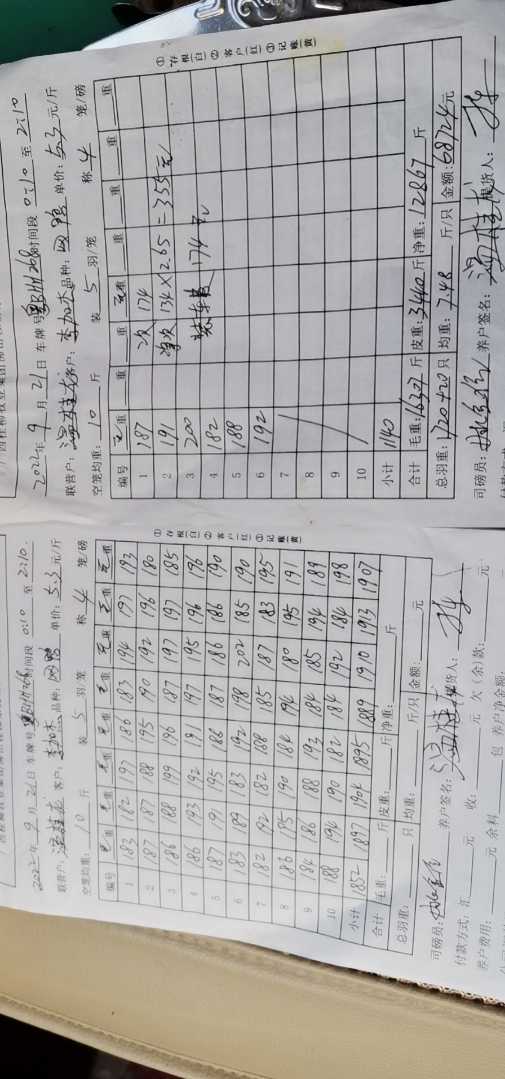 2022年9月21日 车牌号 时间段 0:10 至 2:10
联营户: 客户: 李加杰 品种: 单价: 5.3 元/斤
空笼均重: 10 斤 装 5 羽/笼 称 4 笼/磅
编号 毛重 重 毛重 重 重 重 重
1 187 次 174
2 191 134×2.65=355元
3 200
4 182 174
5 188
6 192
7
8
9
10
小计 1140
合计 毛重: 斤 皮重: 3440 斤 净重: 12867 斤
总羽重: 1720+20 只 均重: 7.48 斤/只 金额: 68724元
司磅员: 养户签名: 提货人:
①存根(白) ②客户(红) ③记账(黄)
2022年9月21日 车牌号 时间段 0:10 至 2:10
联营户: 客户: 李加杰 品种: 单价: 5.3 元/斤
空笼均重: 10 斤 装 5 羽/笼 称 4 笼/磅
编号 毛重 毛重 毛重 毛重 毛重 毛重 毛重 毛重
1 183 182 197 186 183 194 197 193
2 187 187 188 195 190 192 196 180
3 186 188 199 196 187 197 197 185
4 186 193 192 191 197 195 196 196
5 187 191 195 186 187 186 186 190
6 183 189 183 192 198 202 185 190
7 182 192 182 188 185 187 183 195
8 186 195 190 184 194 180 195 191
9 184 186 188 193 184 185 194 189
10 188 194 190 182 184 192 184 198
小计 1852 1897 1904 1895 1889 1910 1913 1907
合计 毛重: 斤 皮重: 斤 净重: 斤
总羽重: 只 均重: 斤/只 金额: 元
司磅员: 养户签名: 提货人:
付款方式: 元 收: 元 欠(余)款: 元
养户费用: 元 余料 包 养户净金额:
①存根(白) ②客户(红) ③记账(黄)